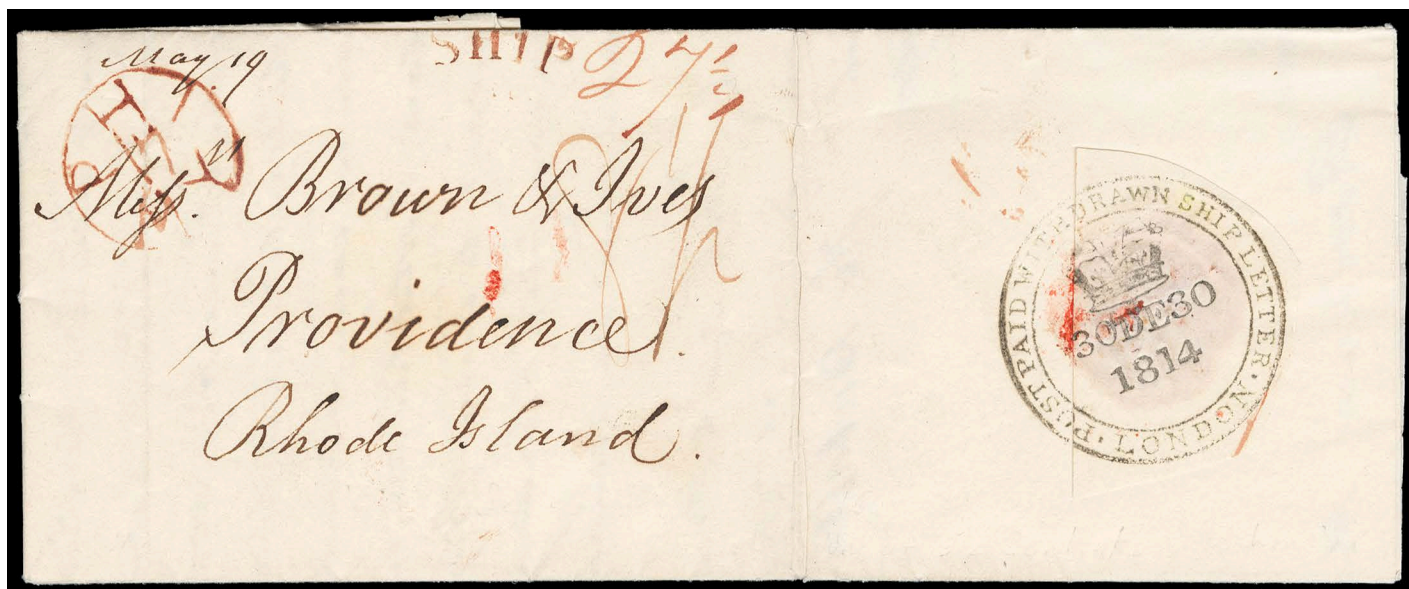 May 19
SHIP 27½
Mess.rs Brown & Ives
Providence.
Rhode Island.
POST PAID WITHDRAWN SHIP LETTER · LONDON ·
30DE30
1814